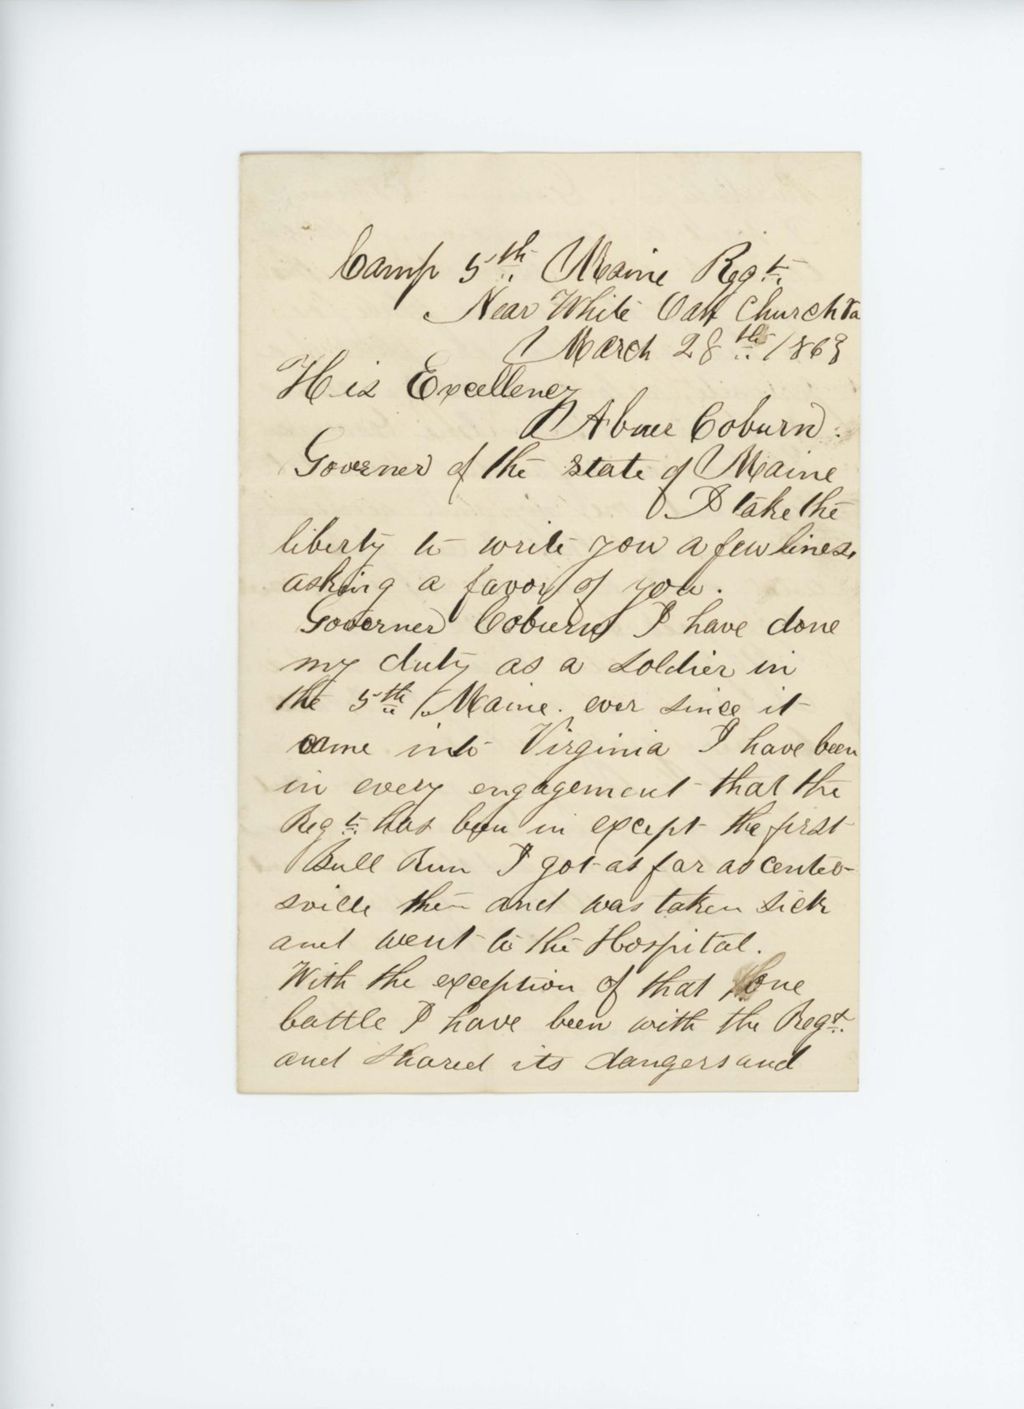 Camp 5th Maine Regt.
Near White Oak Church Va
March 28th 1863
His Excellency
Abner Coburn.
Governer of the state of Maine
I take the
liberty to write you a few lines,
asking a favor of you.
Governer Coburn I have done
my duty as a soldier in
the 5th Maine. ever since it
came into Virginia I have been
in every engagement that the
Regt. has been in except the first
Bull Run I got as far as Center-
sville then and was taken sick
and went to the Hospital.
With the exception of that one
battle I have been with the Regt.
and shared its dangers and